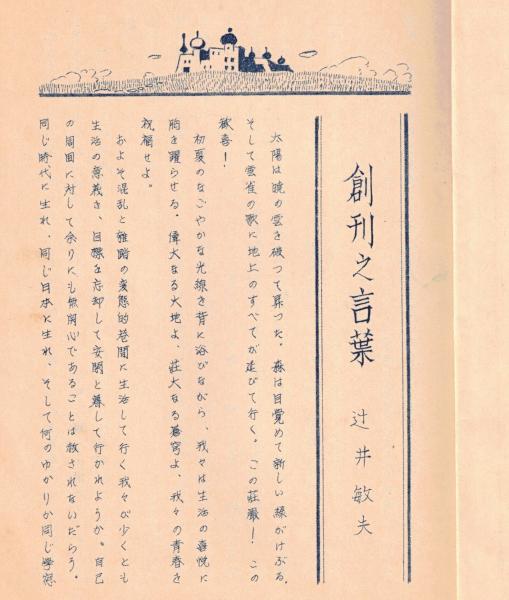 創刊之言葉
辻井敏夫
太陽は暁の雲を破つて昇つた。森は目覚めて新しい緑がけぶる。
そして雲雀の歌に地上のすべてが延びて行く。この荘厳！この
歓喜！
初夏のなごやかな光線を背に浴びながら、我々は生活の喜悦に
胸を躍らせる。偉大なる大地よ、荘大なる蒼穹よ、我々の青春を
祝福せよ。
およそ混乱と雑踏の変態的巷間に生活して行く我々が少くとも
生活の意義を、目標を忘却して安閑と暮して行かれようか。自己
の周囲に対して余りにも無関心であることは救されないだらう。
同じ時代に生れ、同じ日本に生れ、そして何のゆかりか同じ学窓